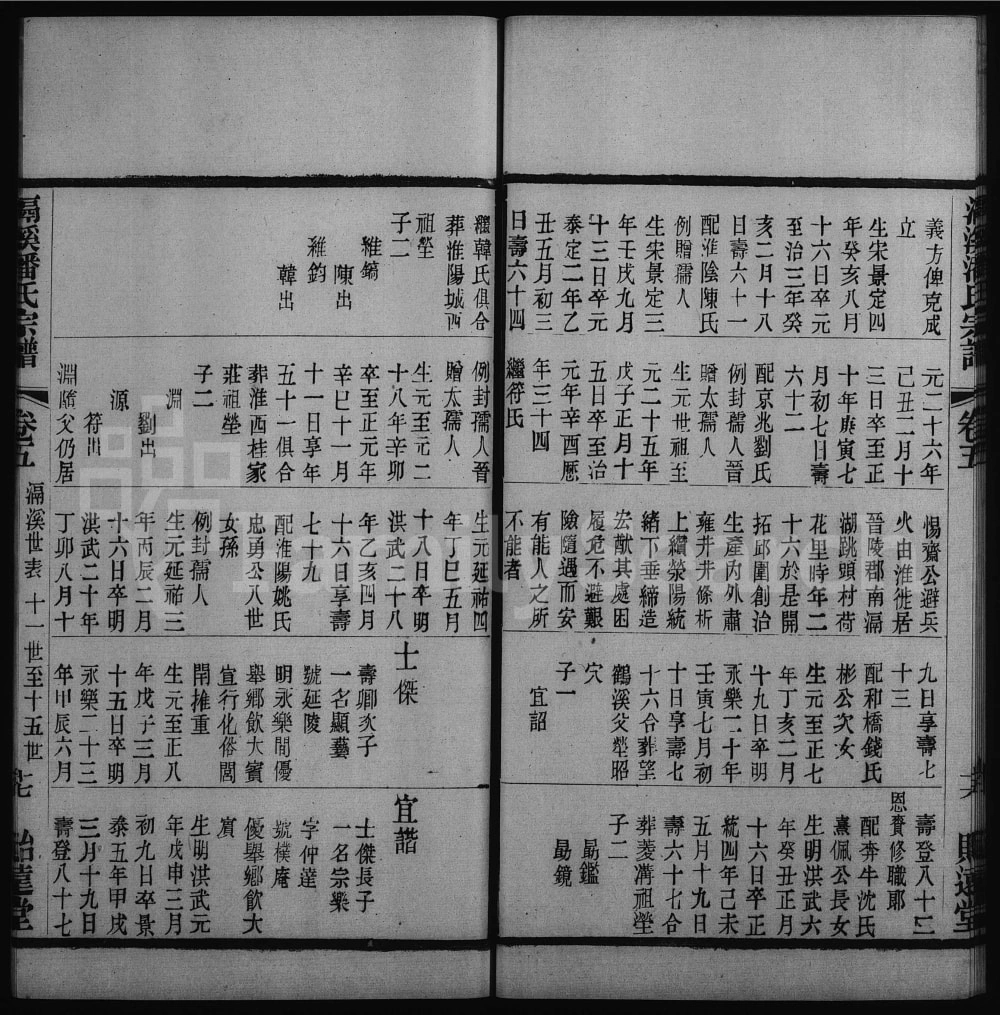 滆溪潘氏宗譜
卷五
義方俾克成
立
生宋景定四
年癸亥八月
十六日卒元
至治三年癸
亥二月十八
日壽六十一
配淮陰陳氏
例贈孺人
生宋景定三
年壬戌九月
十三日卒元
泰定二年乙
丑五月初三
日壽六十四
元二十六年
己丑二月十
三日卒至正
十年庚寅七
月初七日壽
六十二
配京兆劉氏
例封孺人晉
贈太孺人
生元世祖至
元二十五年
戊子正月十
五日卒至治
元年辛酉歷
年三十四
繼符氏
惕齋公避兵
火由淮徙居
晉陵郡南滆
湖跳頭村荷
花里時年二
十六於是開
拓邱園創治
生產內外肅
雍井井條析
上纘滎陽統
緒下垂締造
宏猷其處困
履危不避艱
險隨遇而安
有能人之所
不能者
九日享壽七
十三
配和橋錢氏
彬公次女
生元至正七
年丁亥二月
十九日卒明
永樂二十年
壬寅七月初
十日享壽七
十六合葬望
鶴溪父塋昭
穴
子一
宜詔
壽登八十二
恩賚修職郎
配奔牛沈氏
熹佩公長女
生明洪武六
年癸丑正月
十六日卒正
統四年己未
五月十九日
壽六十七合
葬菱溝祖塋
子二
勗鑑
勗鏡
繼韓氏俱合
葬淮陽城西
祖塋
子二
維鏑
陳出
維鈞
韓出
例封孺人晉
贈太孺人
生元至元二
十八年辛卯
卒至正元年
辛巳十一月
十一日享年
五十一俱合
葬淮西桂家
莊祖塋
子二
淵
劉出
源
符出
淵隨父仍居
生元延祐四
年丁巳五月
十八日卒明
洪武二十八
年乙亥四月
十六日享壽
七十九
配淮陽姚氏
忠勇公八世
女孫
例封孺人
生元延祐三
年丙辰二月
十六日卒明
洪武二十年
丁卯八月十
士傑
壽卿次子
一名顯藝
號延陵
明永樂間優
舉鄉飲大賓
宣行化俗閭
閈推重
生元至正八
年戊子三月
十五日卒明
永樂二十三
年甲辰六月
宜諧
士傑長子
一名宗樂
字仲達
號樸庵
優舉鄉飲大
賓
生明洪武元
年戊申三月
初九日卒景
泰五年甲戌
三月十九日
壽登八十七
滆溪潘氏宗譜
卷五
滆溪世表
十一世至十五世
十七
貽達堂